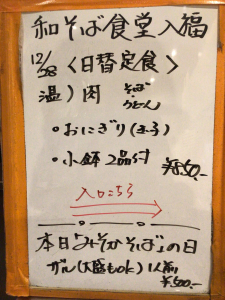 和そば食堂入福
12/28 〈日替定食〉
温)肉 そば・うどん
・おにぎり(玉子)
・小鉢2品付 ¥850.-
入口こちら
本日「みそかそば」の日
ザル(大盛もok)1人前
¥500.-